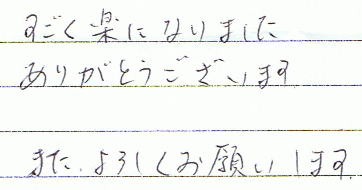 すごく楽になりました
ありがとうございます
また、よろしくお願いします